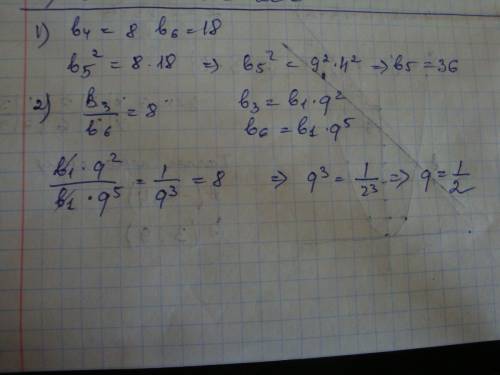 1) b₄ = 8 b₆ = 18
b₅² = 8·18 ⇒ b₅² = 9²·4² ⇒ b₅ = 36
2) B₃/b₆ = 8 b₃ = b₁·q²
b₆ = b₁·q⁵
b₁·q²/b₁·q⁵ = 1/q³ = 8 ⇒ q³ = 1/2³ ⇒ q = 1/2